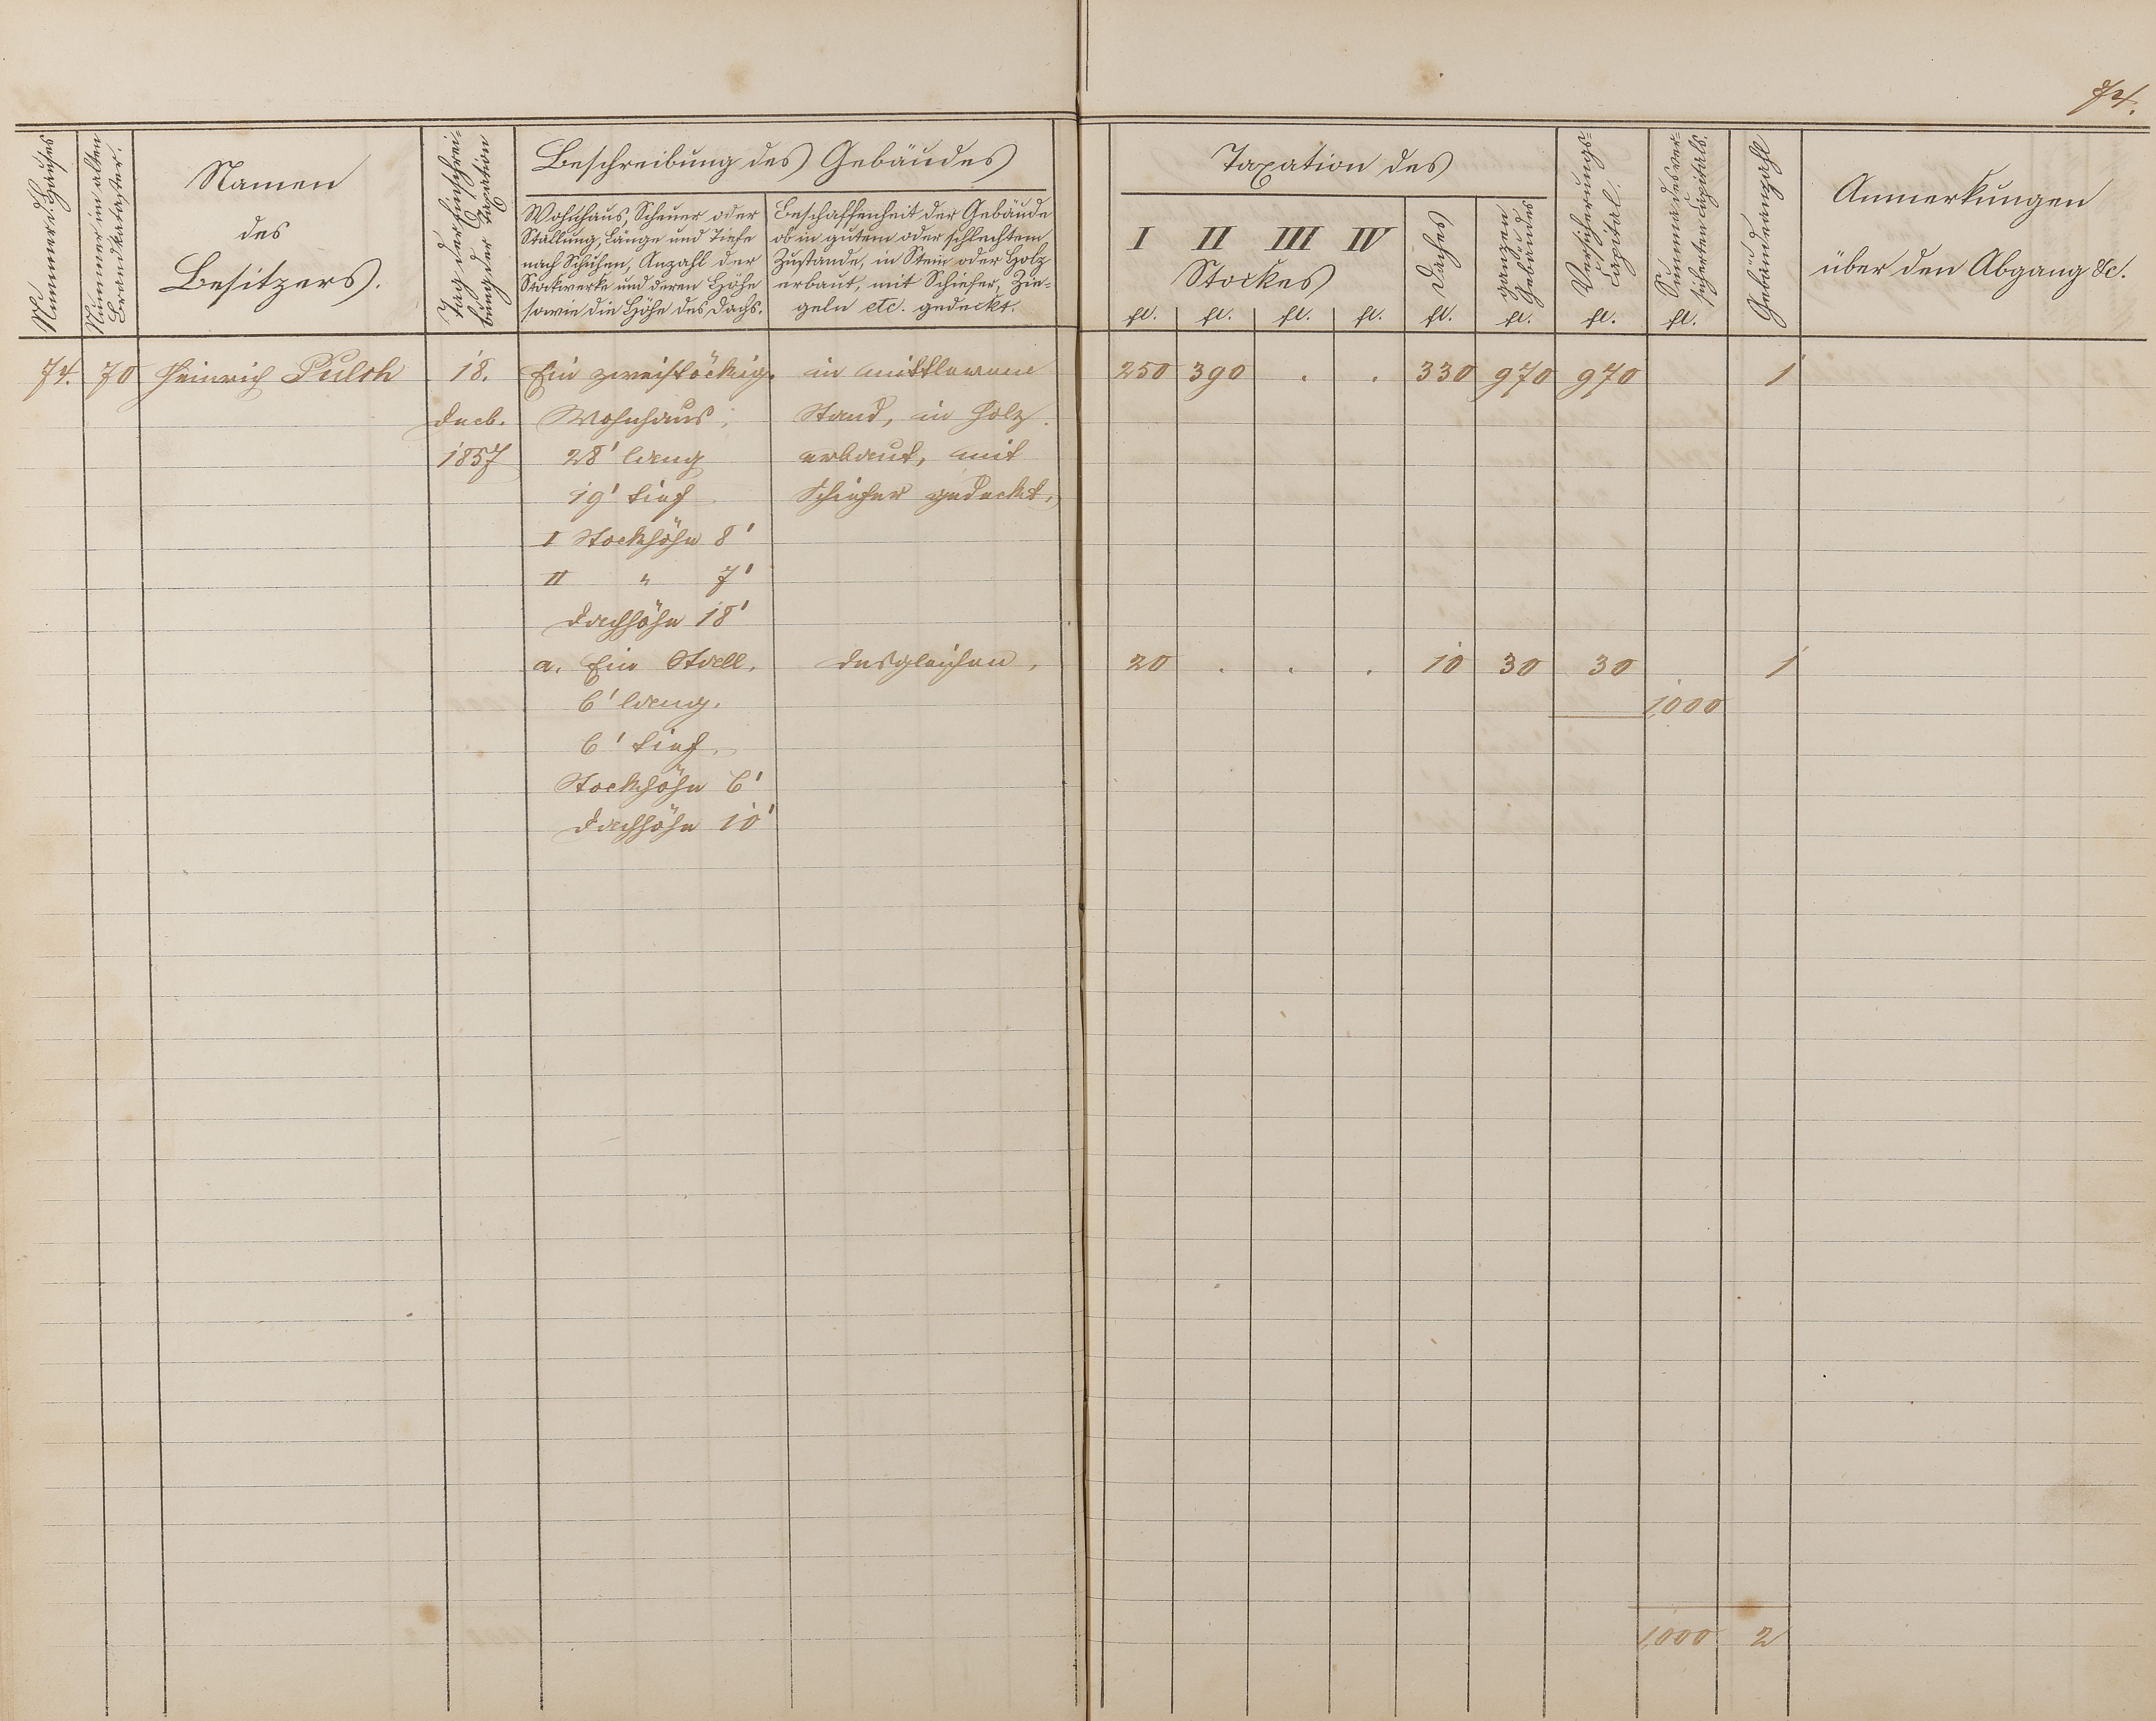 74.
Nummer d. Hauses
Nummer im alten
Brandkataster.
Namen
des
Besitzers.
Tag der Einschrei-
bung der Taxation
Beschreibung des Gebäudes
Wohnhaus, Scheuer oder
Stallung, Länge und Tiefe
nach Schuhen, Anzahl der
Stockwerke und deren Höhe
sowie die Höhe des Dachs.
Beschaffenheit der Gebäude
ob in gutem oder schlechtem
Zustande, in Stein oder Holz
erbaut, mit Schiefer, Zie-
geln etc. gedeckt.
Taxation des
I II III IV
Stockes
Daches
ganzen
Gebäudes
Versicherungs-
Capital.
Summa des ver-
sicherten Capitals.
Gebäudeanzahl
Anmerkungen
über den Abgang &c.
fl. fl. fl. fl. fl. fl. fl. fl.
74. 70 Heinrich Pulch 18. Ein zweistöckig. in mittlerem 250 390 . . 330 970 970 1
Decb. Wohnhaus, Stand, in Holz
1857 28' lang erbaut, mit
19' tief Schiefer gedeckt,
I Stockhöhe 8'
II " 7'
Dachhöhe 18'
a. Ein Stall, desgleichen, 20 . . . 10 30 30 1
6' lang. 1000
6' tief,
Stockhöhe 6'
Dachhöhe 10'
1000 2